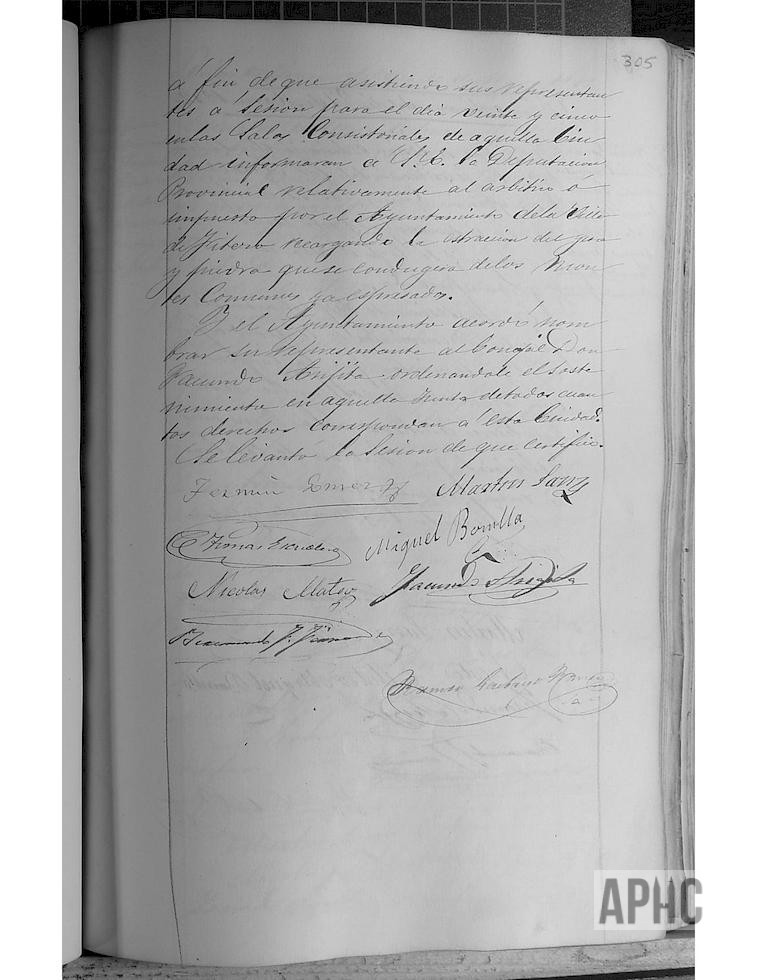 305
á fin de que asistiendo sus representan
tes á Sesion para el dia veinte y cinco
en las Salas Consistoriales de aquella Ciu
dad informaran a S.E. la Diputacion
Provincial relativamente al arbitrio ó
impuesto por el Ayuntamiento de la Villa
de Fitero recargando la estracion del yeso
y piedra que se condugera de los Mon
es Comunes ya espresados.
Y el Ayuntamiento acordó nom
brar su representante al Concejal Don
Facundo ordenandole el soste
nimiento en aquella Junta de todos cuan
tos derechos correspondan á esta Ciudad.
Se levantó la Sesion de que certifico.
Fermin Martin Sanz
Tomas Escudero
Miguel Bonilla
Nicolas Mateo Facundo
Ramon
APHC